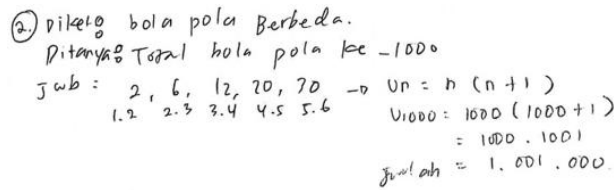 2. Diket : bola pola Berbeda.
Ditanya : Total bola pola ke -1000
Jwb : 2, 6, 12, 20, 30 → Un = n (n+1)
1.2 2.3 3.4 4.5 5.6 U1000 = 1000 (1000+1)
= 1000 . 1001
Jumlah = 1.001.000.